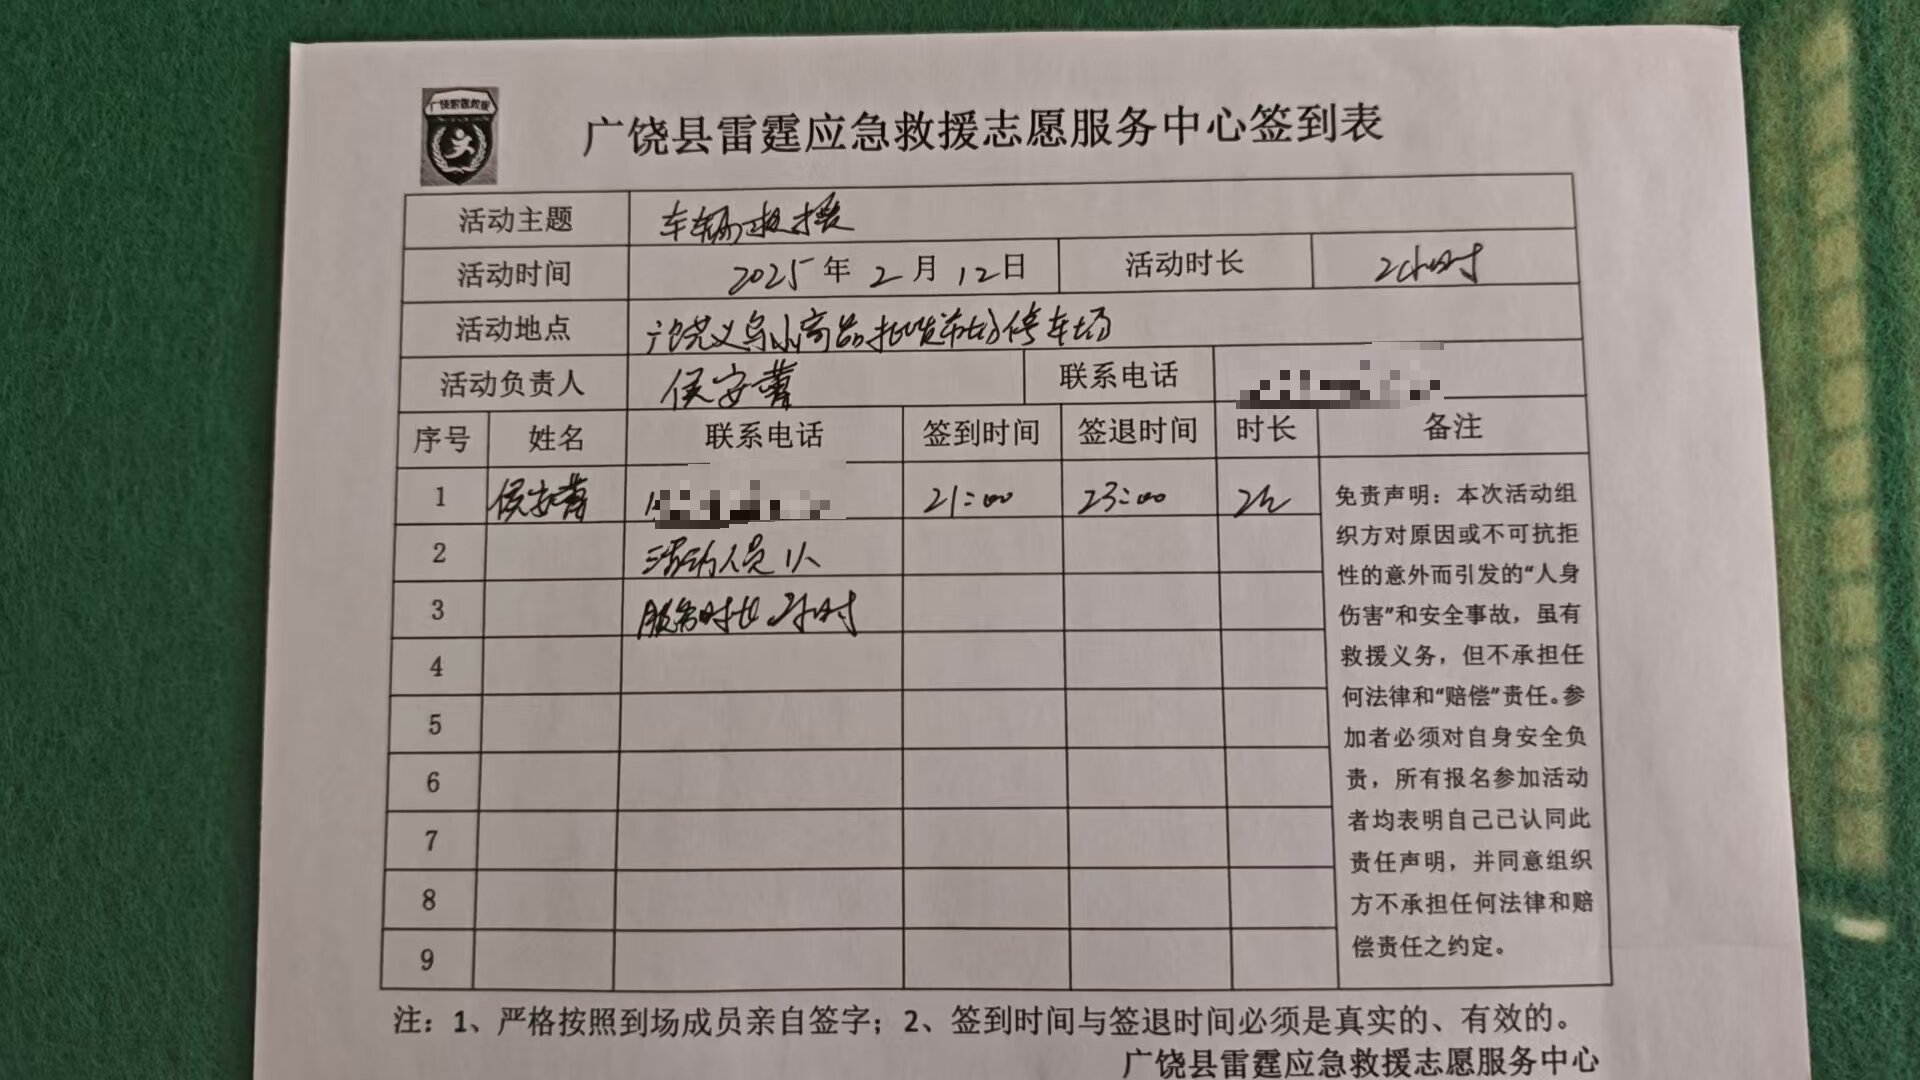 广饶雷霆救援
广饶县雷霆应急救援志愿服务中心签到表
活动主题 车辆救援
活动时间 2025年2月12日 活动时长 2小时
活动地点 广饶义乌小商品批发市场停车场
活动负责人 侯安菁 联系电话
序号 姓名 联系电话 签到时间 签退时间 时长 备注
1 侯安菁 21:00 23:00 2h
2 活动人员 1人
3 服务时长 2小时
4
5
6
7
8
9
免责声明：本次活动组
织方对原因或不可抗拒
性的意外而引发的“人身
伤害”和安全事故，虽有
救援义务，但不承担任
何法律和“赔偿”责任。参
加者必须对自身安全负
责，所有报名参加活动
者均表明自己已认同此
责任声明，并同意组织
方不承担任何法律和赔
偿责任之约定。
注：1、严格按照到场成员亲自签字；2、签到时间与签退时间必须是真实的、有效的。
广饶县雷霆应急救援志愿服务中心